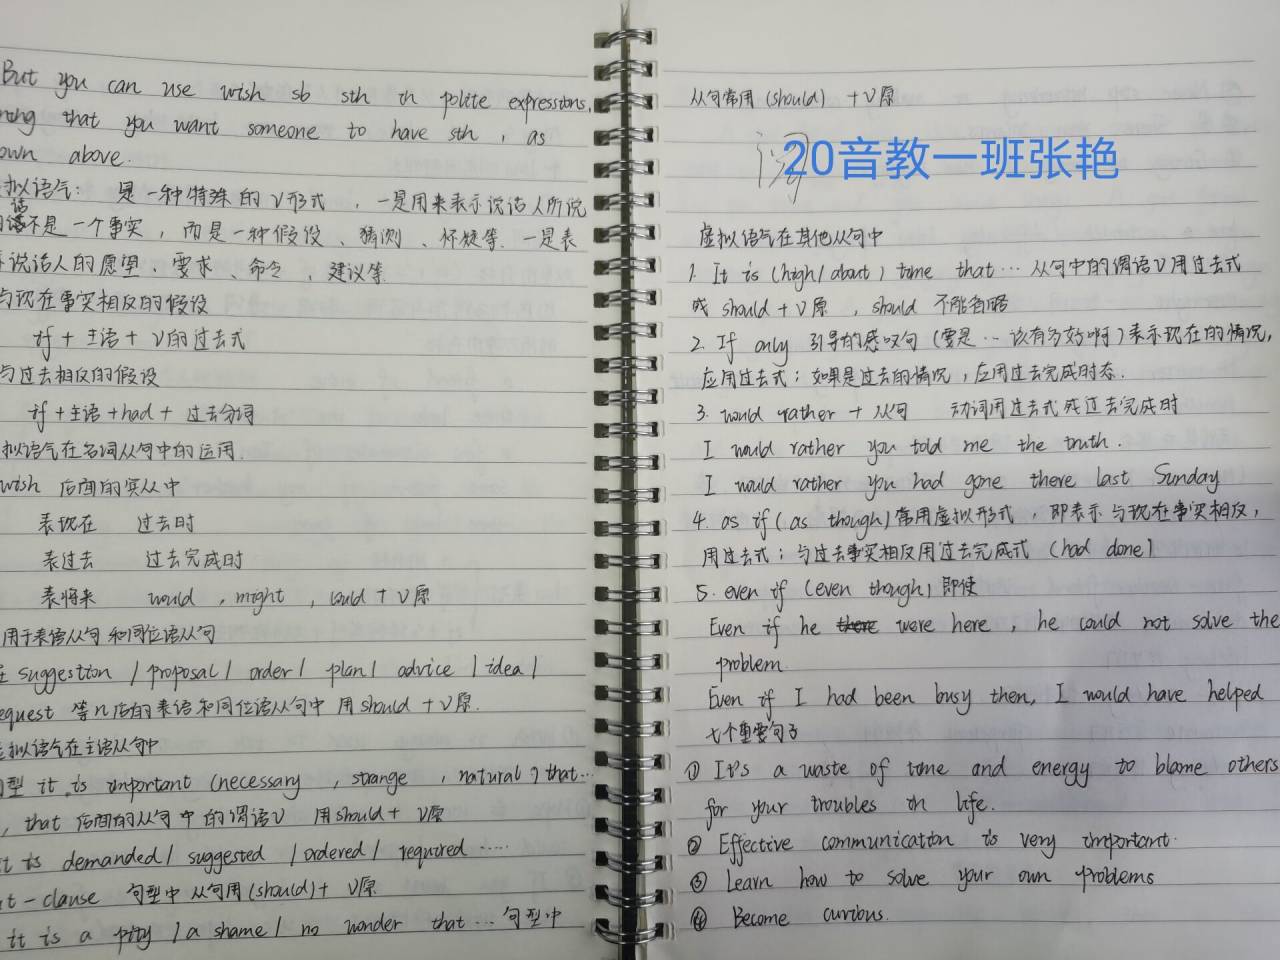 But you can use wish sb sth in polite expressions,
that you want someone to have sth, as
own above.
拟语气: 是一种特殊的V形式, 一是用来表示说话人所说
的话不是一个事实, 而是一种假设、猜测、怀疑等. 一是表
示说话人的愿望、要求、命令, 建议等
与现在事实相反的假设
if + 主语 + V的过去式
与过去相反的假设
if + 主语 + had + 过去分词
拟语气在名词从句中的运用
wish 后面的宾从中
表现在 过去时
表过去 过去完成时
表将来 would, might, could + V原
用于表语从句和同位语从句
在 suggestion / proposal / order / plan / advice / idea /
equest 等n后的表语和同位语从句中 用should + V原.
虚拟语气在主语从句中
型 it is important (necessary, strange, natural) that...
, that 后面的从句中的谓语V 用should + V原
it is demanded / suggested / ordered / required ······
t - clause 句型中 从句用(should)+ V原
it is a pity / a shame / no wonder that... 句型中
从句常用 (should) + V原
20音教一班张艳
虚拟语气在其他从句中
1. It is (high / about) time that... 从句中的谓语V用过去式
或 should + V原, should 不能省略
2. If only 引导的感叹句 (要是... 该有多好啊) 表示现在的情况,
应用过去式; 如果是过去的情况, 应用过去完成时态.
3. would rather + 从句 动词用过去式或过去完成时
I would rather you told me the truth.
I would rather you had gone there last Sunday
4. as if (as though) 常用虚拟形式, 即表示与现在事实相反,
用过去式; 与过去事实相反用过去完成式 (had done)
5. even if (even though) 即使
Even if he there were here, he could not solve the
problem.
Even if I had been busy then, I would have helped
七个重要句子
① It's a waste of time and energy to blame others
for your troubles in life.
② Effective communication is very important.
③ Learn how to solve your own problems
④ Become curious.